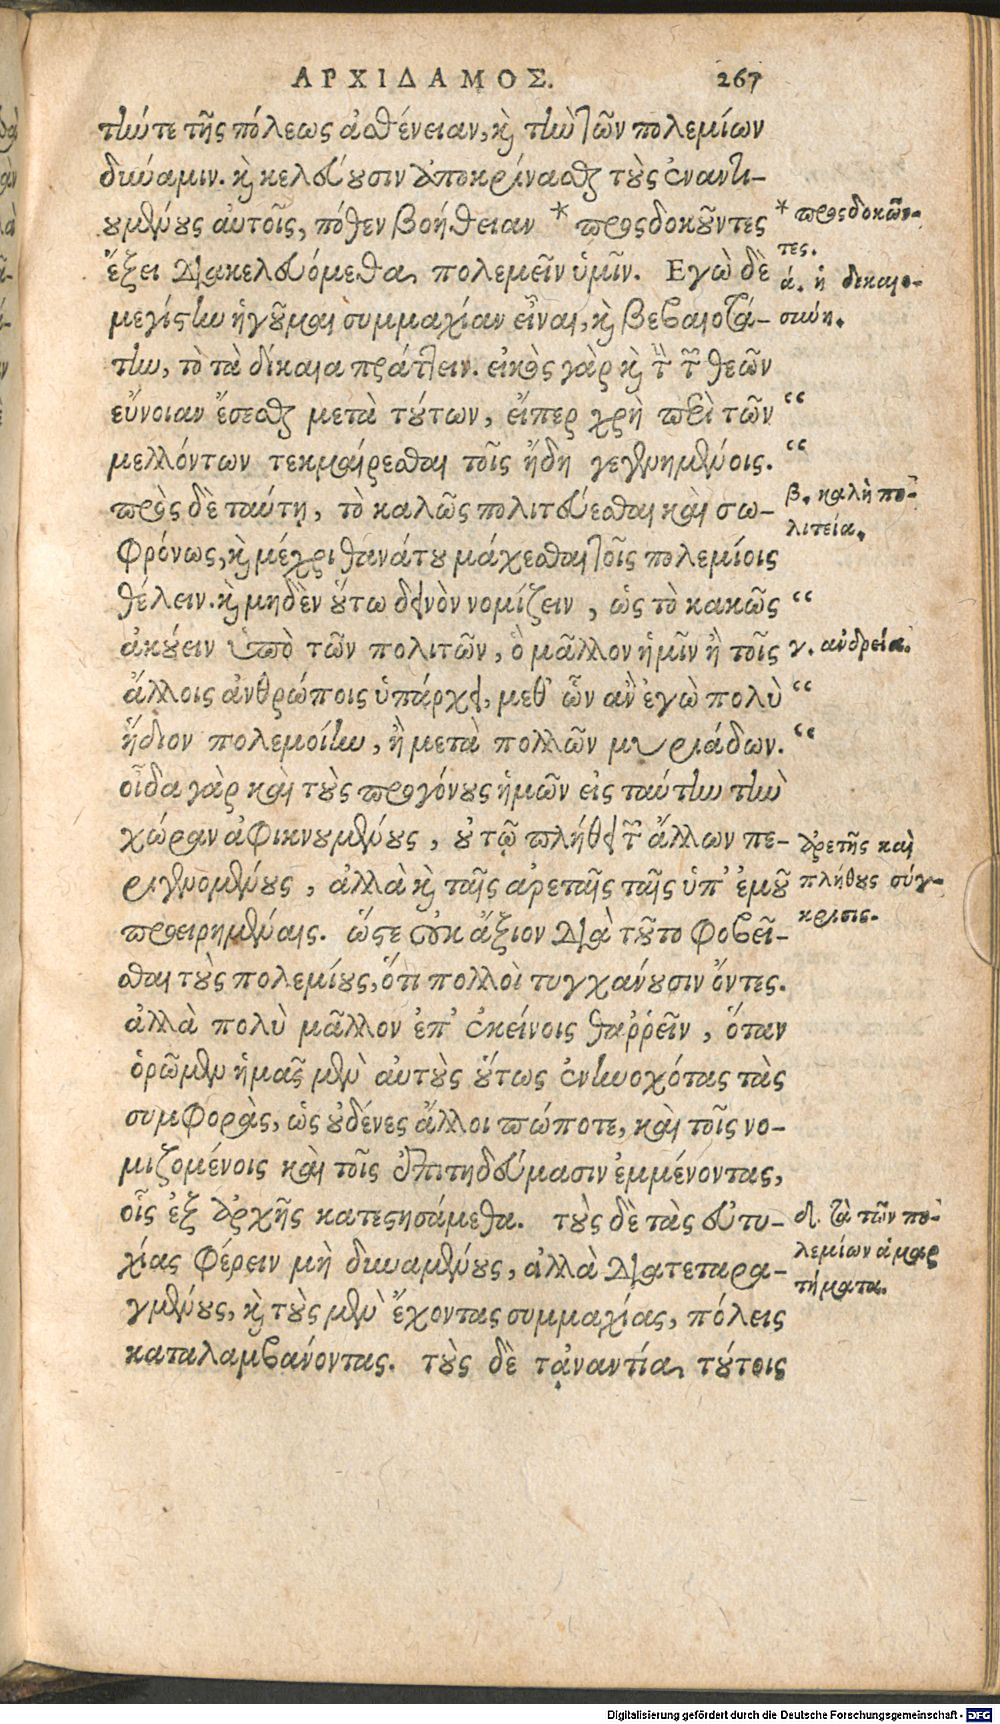 ΑΡΧΙΔΑΜΟΣ. 267
τήν τε τῆς πόλεως ἀσθένειαν, καὶ τὴν τῶν πολεμίων
δύναμιν. καὶ κελεύουσιν ἀποκρίνασθαι τοὺς ἐναντι-
ουμένους αὐτοῖς, πόθεν βοήθειαν * προσδοκοῦντες
ἕξει διακελευόμεθα πολεμεῖν ὑμῖν. Εγὼ δὲ
μεγίστην ἡγοῦμαι συμμαχίαν εἶναι, καὶ βεβαιοτά-
την, τὸ τὰ δίκαια πράττειν. εἰκὸς γὰρ καὶ τὴν τῶν θεῶν
εὔνοιαν ἔσεσθαι μετὰ τούτων, εἴπερ χρὴ περὶ τῶν “
μελλόντων τεκμαίρεσθαι τοῖς ἤδη γεγενημένοις. “
πρὸς δὲ ταύτῃ, τὸ καλῶς πολιτεύεσθαι καὶ σω-
φρόνως, καὶ μέχρι θανάτου μάχεσθαι τοῖς πολεμίοις
θέλειν. καὶ μηδὲν οὕτω δεινὸν νομίζειν, ὡς τὸ κακῶς “
ἀκούειν ὑπὸ τῶν πολιτῶν, ὃ μᾶλλον ἡμῖν ἢ τοῖς
ἄλλοις ἀνθρώποις ὑπάρχει, μεθ' ὧν ἂν ἐγὼ πολὺ “
ἥδιον πολεμοίην, ἢ μετὰ πολλῶν μυριάδων. “
οἶδα γὰρ καὶ τοὺς προγόνους ἡμῶν εἰς ταύτην τὴν
χώραν ἀφικνουμένους, οὐ τῷ πλήθει τῶν ἄλλων πε-
ριγενομένους, ἀλλὰ καὶ ταῖς ἀρεταῖς ταῖς ὑπ' ἐμοῦ
προειρημέναις. ὥστε οὐκ ἄξιον διὰ τοῦτο φοβεῖ-
σθαι τοὺς πολεμίους, ὅτι πολλοὶ τυγχάνουσιν ὄντες.
ἀλλὰ πολὺ μᾶλλον ἐπ' ἐκείνοις θαῤῥεῖν, ὅταν
ὁρῶμεν ἡμᾶς μὲν αὐτοὺς οὕτως ἐνηνοχότας τὰς
συμφορὰς, ὡς οὐδένες ἄλλοι πώποτε, καὶ τοῖς νο-
μιζομένοις καὶ τοῖς ἐπιτηδεύμασιν ἐμμένοντας,
οἷς ἐξ ἀρχῆς κατεστησάμεθα. τοὺς δὲ τὰς εὐτυ-
χίας φέρειν μὴ δυναμένους, ἀλλὰ διατεταρα-
γμένους, καὶ τοὺς μὲν ἔχοντας συμμαχίας, πόλεις
καταλαμβάνοντας. τοὺς δὲ τἀναντία τούτοις
* προσδοκῶν-
τες.
ά. ἡ δικαιο-
σύνη.
β. καλὴ πο-
λιτεία.
γ. ἀνδρεία.
ἀρετῆς καὶ
πλήθους σύγ-
κρισις.
δ. τὰ τῶν πο-
λεμίων ἁμαρ
τήματα.
Digitalisierung gefördert durch die Deutsche Forschungsgemeinschaft - DFG